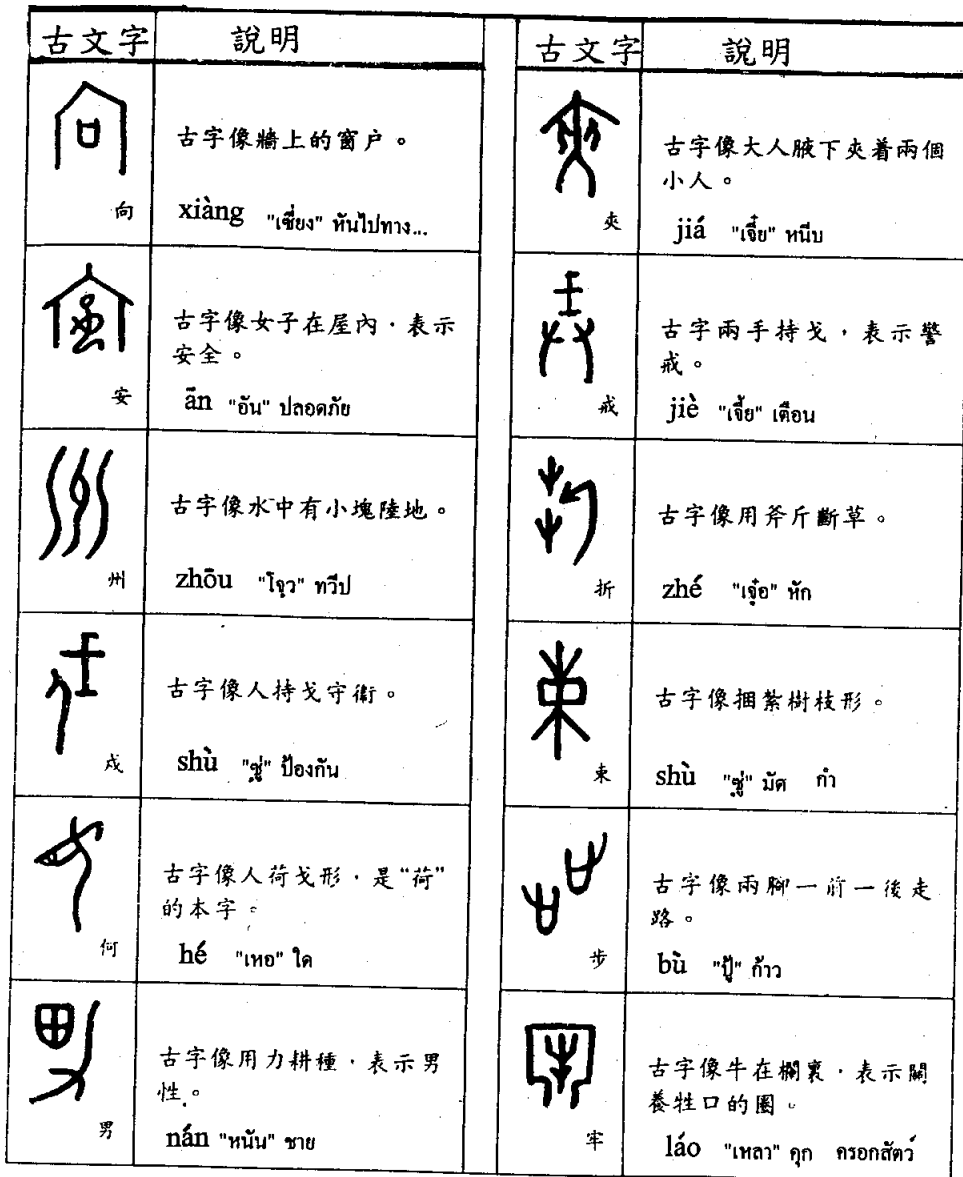 古文字 說明
向
古字像牆上的窗户。
xiàng "เซี่ยง" หันไปทาง...
安
古字像女子在屋內，表示
安全。
ān "อัน" ปลอดภัย
州
古字像水中有小塊陸地。
zhōu "โจฺว" ทวีป
戍
古字像人持戈守衛。
shù "ซู่" ป้องกัน
何
古字像人荷戈形，是“荷”
的本字。
hé "เหอ" ใด
男
古字像用力耕種，表示男
性。
nán "หนัน" ชาย
古文字 說明
夾
古字像大人腋下夾着兩個
小人。
jiá "เจี๋ย" หนีบ
戒
古字兩手持戈，表示警
戒。
jiè "เจี้ย" เตือน
折
古字像用斧斤斷草。
zhé "เจ๋อ" หัก
束
古字像捆紮樹枝形。
shù "ซู่" มัด กำ
步
古字像兩腳一前一後走
路。
bù "ปู้" ก้าว
牢
古字像牛在欄裏，表示關
養牲口的圈。
láo "เหลา" คุก ครอกสัตว์